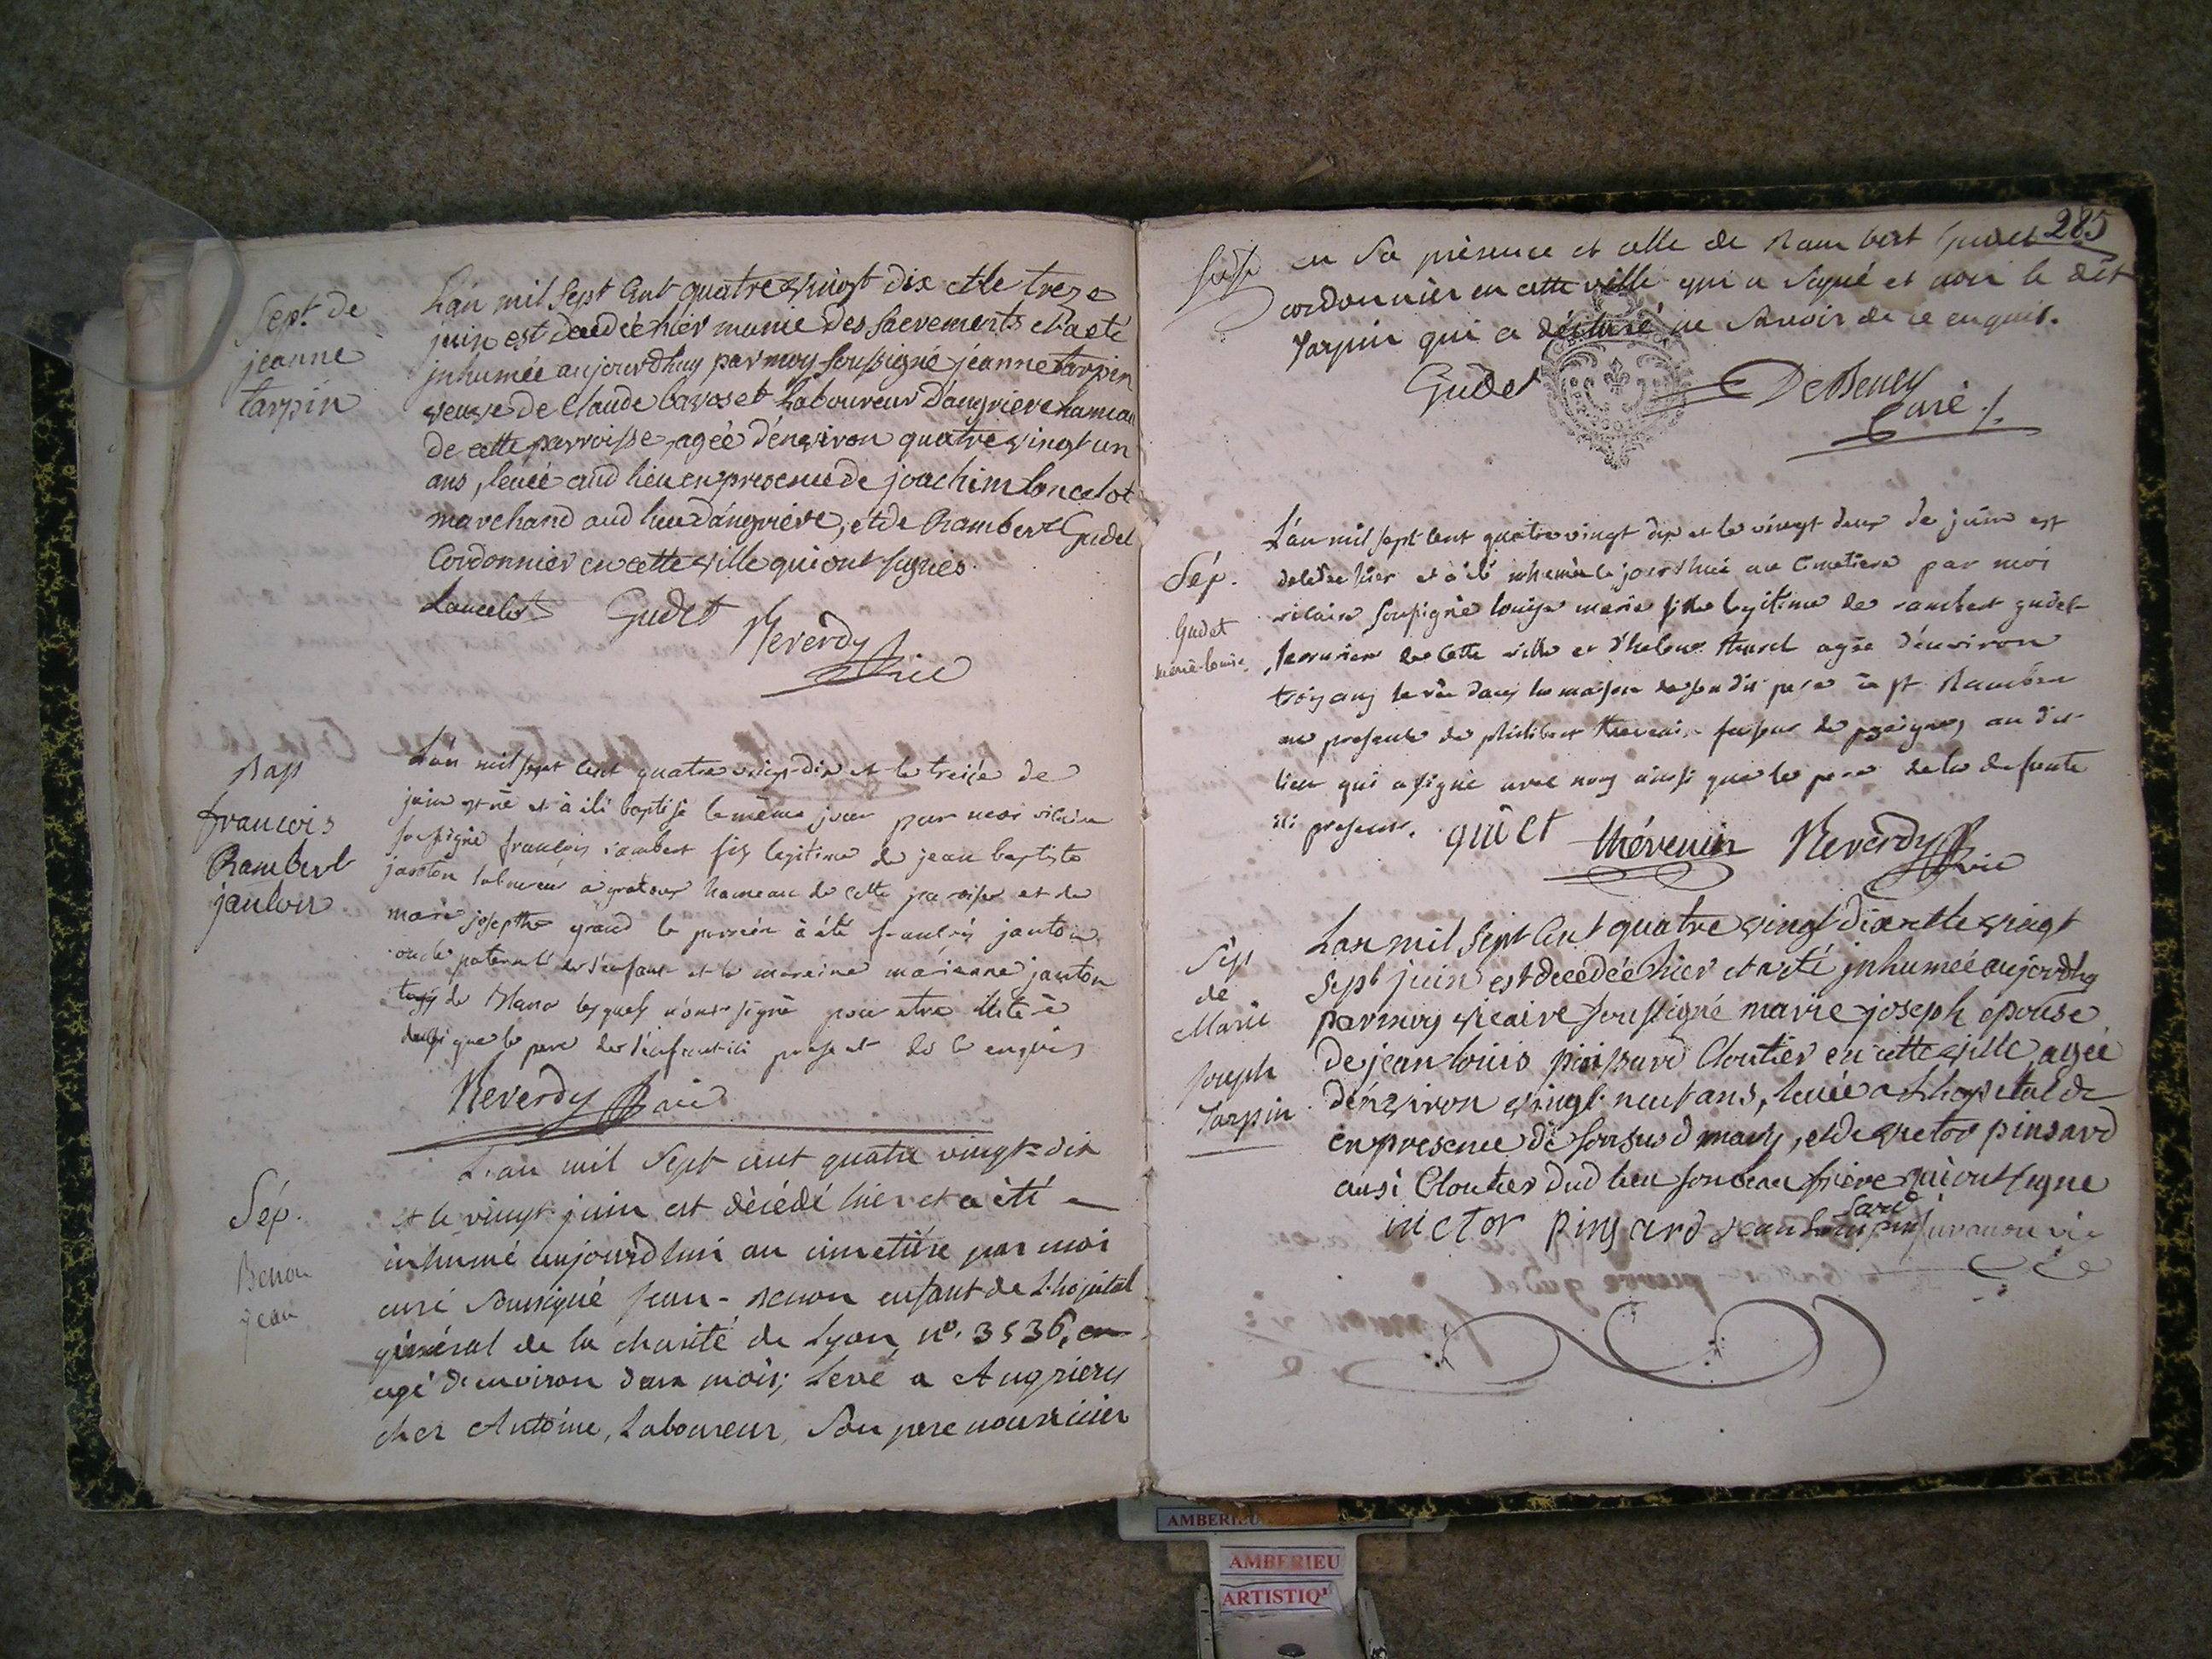 Sept. de
jeanne
tarpin
L'an mil Sept Cent quatre vingt dix et le treze
juin est decedée hier munie des Sacrements et a eté
inhumée aujourdhuy par moy soussigné jeanne tarpin
veuve de Claude bavoset Laboureur d'angrieve hameau
de cette parroisse, agée d'environ quatre vingt un
ans, levée aud lieu en presence de joachim Lancelot
marchand aud lieu d'angrieve, et de Rambert Gudet
Cordonnier en cette ville qui ont signés.
Lancelot Gudet Reverdy
vic
Bap
francois
Rambert
janton
L'an mil sept cent quatre vingt dix et le treize de
juin est né et à été baptisé le même jour par moi vicaire
soussigné francois rambert fils legitime de jean baptiste
janton laboureur a hameau de cette paroisse et de
marie josepthe grand le parrein à été francois janton
oncle paternel de l'enfant et la mareine marianne janton
de Blano lesquels n'ont signé pour etre illiteré
que le pere de l'enfant ici present de ce enquis
Reverdy vic
Sép.
Benon
jean
L'an mil Sept cent quatre vingt-dix
et le vingt juin est décédé hier et a été
inhumé aujourd'hui au cimetiere par moi
curé soussigné Jean-Benon enfant de L'hopital
général de la charité de Lyon, n°. 3536,
agé d'environ deux mois; levé a Angriery
chez Antoine, Laboureur, Son pere nourricier
285
en Sa présence et celle de Rambert Gudet
cordonnier en cette ville qui a Signé et non le dit
Tarpin qui a déclaré ne Savoir de ce enquis.
Gudet DeBeney
Curé
Sép.
Gudet
marie-louise
L'an mil sept cent quatre vingt dix et le vingt deux de juin est
decedée hier et à été inhumée le jourd'hui au Cimetiere par moi
vicaire soussigné louise marie fille legitime de rambert gudet
de cette ville et d'helene agée d'environ
trois ans levée dans la maison de son dit pere à st Rambert
en presence de philibert thevenin faiseur de peignes au dit
lieu qui a signé avec nous ainsi que le pere de la defunte
ici present. gudet thévenin Reverdy
vic
Sép
de
Marie
Joseph
Tarpin
L'an mil Sept Cent quatre vingt dix et le vingt
Sept juin est decedée hier et a eté inhumée aujourdhy
par moy vicaire soussigné marie joseph épouse
de jean louis pinsard Cloutier en cette ville, agée
d'environ vingt neuf ans, levée a L'hopital de
en presence de son sus d mary, et de victor pinsard
ausi Cloutier dud lieu son beau frere qui ont signe
victor pinsard jean louis pinsard juvanon vic
AMBERIEU
AMBERIEU
ARTISTIQ'